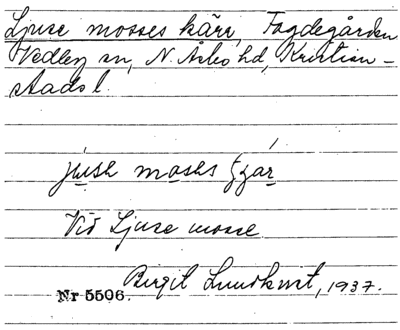 Ljuse mosses kärr, Fogdegården
Vedby sn, N. Åsbo hd, Kristian-
stads l.
mosas
Vid Ljuse mosse
Birgit Lundkvist, 1937.
Nr 5506.